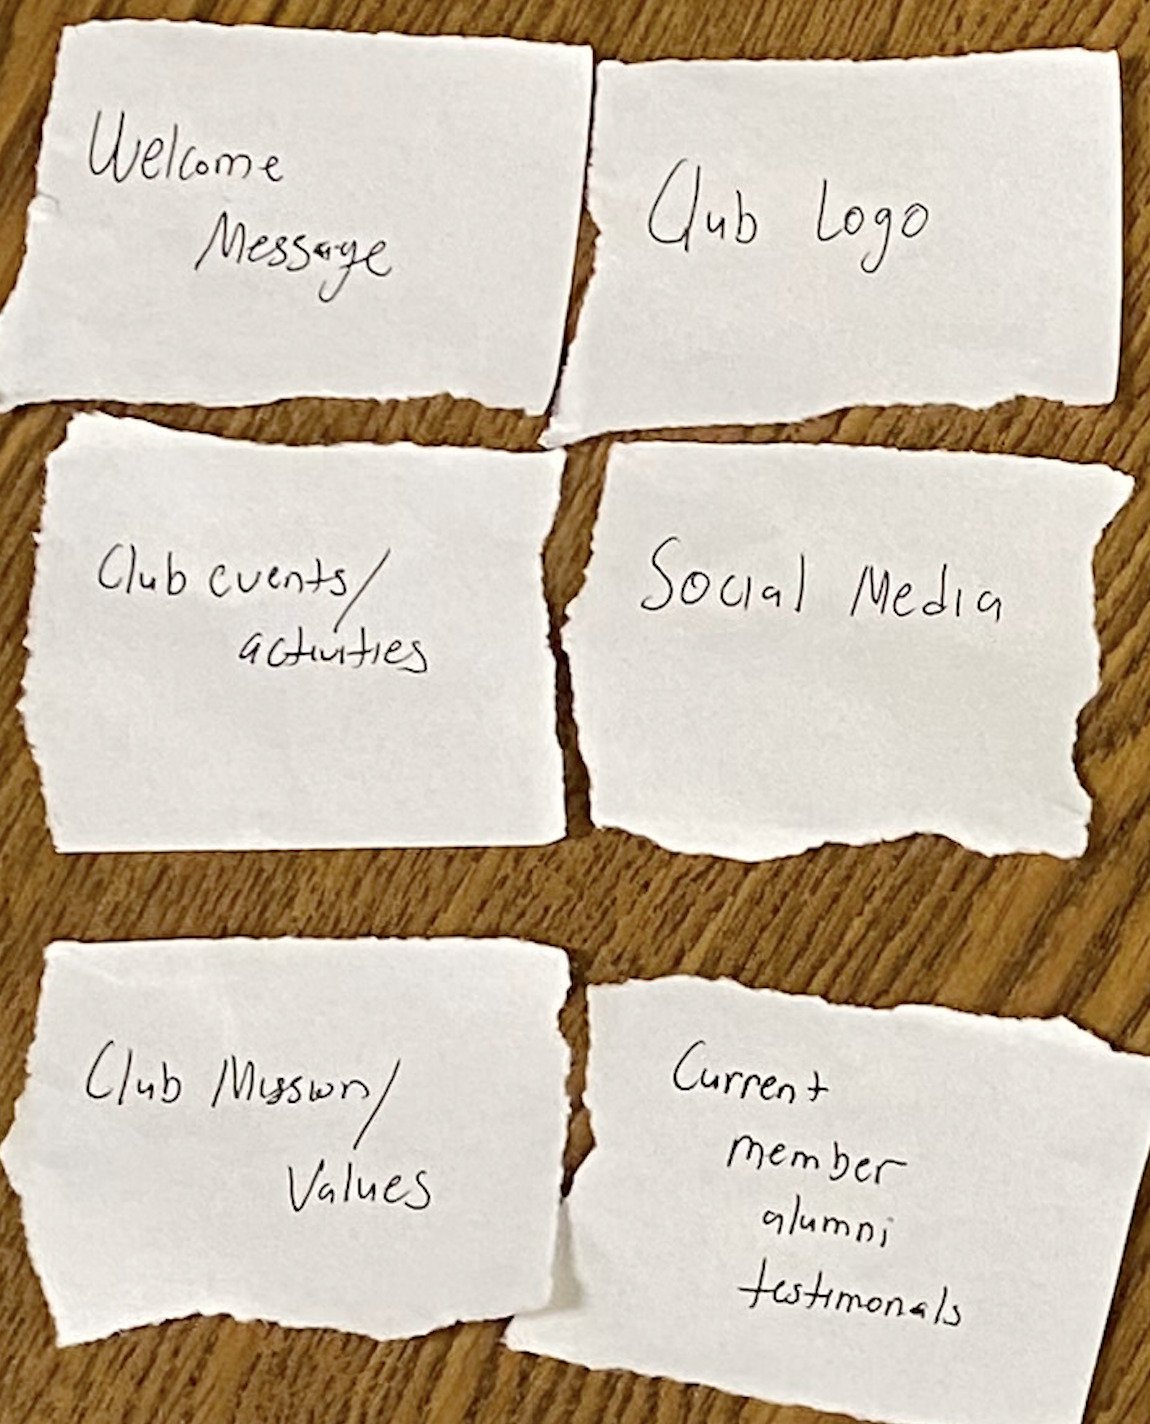 Welcome
Message
Club Logo
Club events/
activities
Social Media
Club Mission/
Values
Current
member
alumni
testimonals